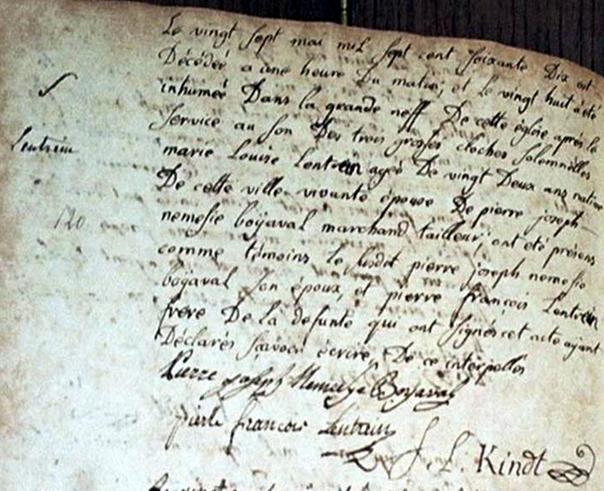 Le vingt sept mai mil sept cent soixante Dix est
Décédée a une heure Du matin, et le vingt huit a été
inhumée Dans la grande neff De cette église apres le
Service au son Des trois grosses cloches Solemnelles
S
Lentrein
marie Louise Lentrein agée De vingt Deux ans native
De cette ville vivante épouse De pierre joseph
120
nemesie boyaval marchand tailleur, ont été présens
comme témoins le susdit pierre joseph nemesie
boyaval son époux, et pierre francois Lentrein
frere De la defunte qui ont signés cet acte ayant
Déclarés scavoir écrire, De ce interpellés
Pierre joseph Nemesye Boyaval
pierre francois Lentrein
J. L. Kindt